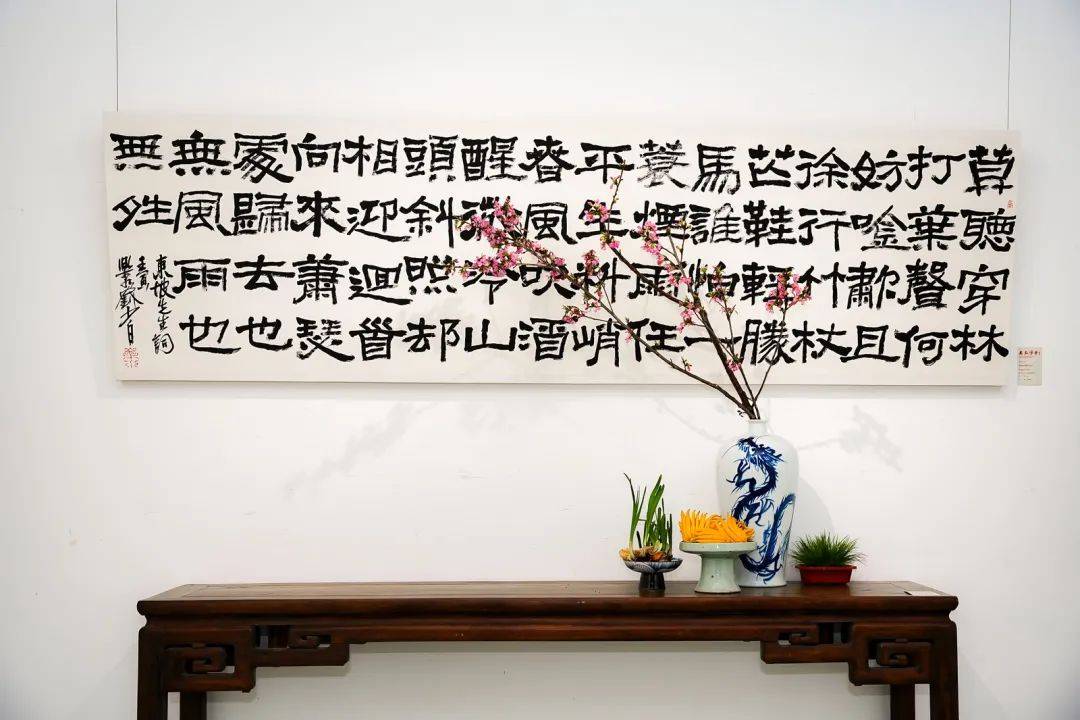 莫聽穿林
打葉聲何
妨唫歗且
徐行竹杖
芒鞵輕勝
馬誰怕一
蓑煙雨任
平生料峭
春風吹酒
醒微冷山
頭斜照却
相迎迴首
向來蕭瑟
處歸去也
無風雨也
無夝
東坡先生詞